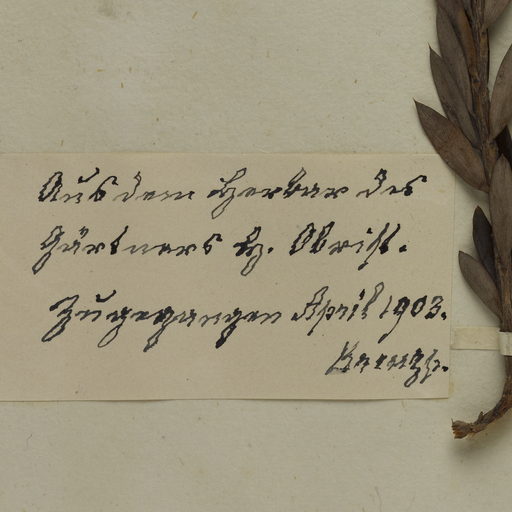 Aus dem Herbar des
Gärtners Hz. Obrist.
Zugegangen April 1903.